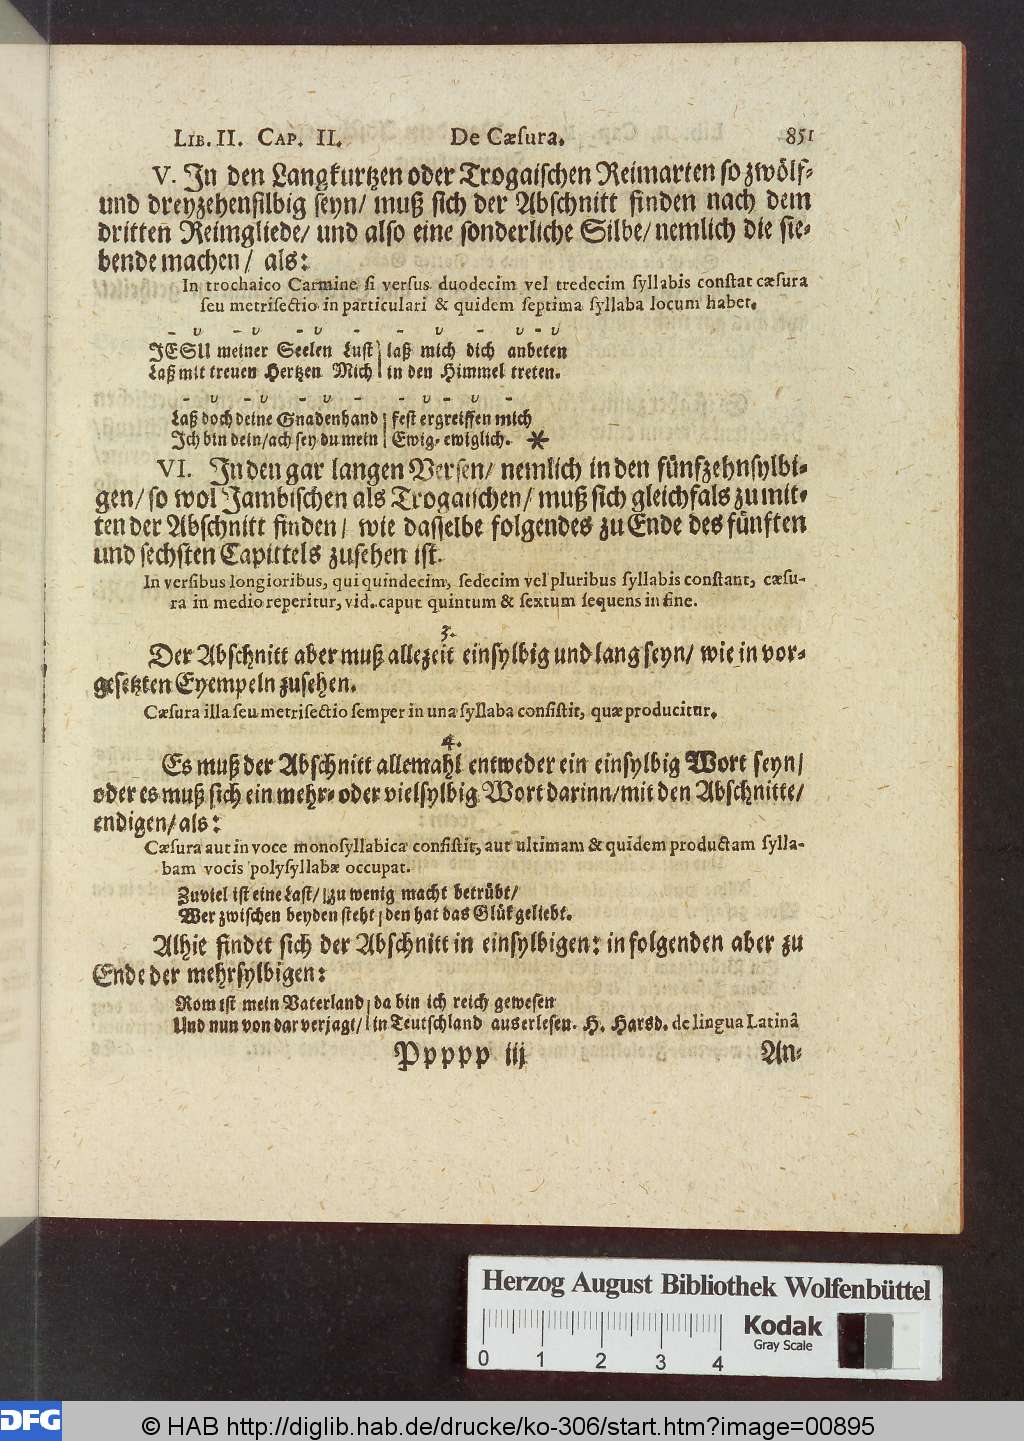 LIB. II. CAP. II. De Cæſura. 851
V. In den Langkurtzen oder Trogaiſchen Reimarten ſo zwölf-
und dreyzehenſilbig ſeyn/ muß ſich der Abſchnitt finden nach dem
dritten Reimgliede/ und alſo eine ſonderliche Silbe/ nemlich die ſie-
bende machen/ als:
In trochaico Carmine ſi verſus duodecim vel tredecim ſyllabis conſtat cæſura
ſeu metriſectio in particulari & quidem ſeptima ſyllaba locum habet.
– υ – υ – υ – – υ – υ – υ
JESU meiner Seelen Luſt | laß mich dich anbeten
Laß mit treuen Hertzen Mich | in den Himmel treten.
– υ – υ – υ – – υ – υ –
Laß doch deine Gnadenhand | feſt ergreiffen mich
Ich bin dein/ ach ſey du mein | Ewig-ewiglich. *
VI. In den gar langen Verſen/ nemlich in den fünfzehnſylbi-
gen/ ſo wol Jambiſchen als Trogaiſchen/ muß ſich gleichfals zu mit-
ten der Abſchnitt finden/ wie daſſelbe folgendes zu Ende des fünften
und ſechſten Capittels zuſehen iſt.
In verſibus longioribus, qui quindecim, ſedecim vel pluribus ſyllabis conſtant, cæſu-
ra in medio reperitur, vid. caput quintum & ſextum ſequens in fine.
3.
Der Abſchnitt aber muß allezeit einſylbig und lang ſeyn/ wie in vor-
geſetzten Exempeln zuſehen.
Cæſura illa ſeu metriſectio ſemper in una ſyllaba conſiſtit, quæ producitur.
4.
Es muß der Abſchnitt allemahl entweder ein einſylbig Wort ſeyn/
oder es muß ſich ein mehr- oder vielſylbig Wort darinn/ mit den Abſchnitte/
endigen/ als:
Cæſura aut in voce monoſyllabica conſiſtit, aut ultimam & quidem productam ſylla-
bam vocis polyſyllabæ occupat.
Zuviel iſt eine Laſt/ | zu wenig macht betrübt/
Wer zwiſchen beyden ſteht | den hat das Glük geliebt.
Alhie findet ſich der Abſchnitt in einſylbigen: in folgenden aber zu
Ende der mehrſylbigen:
Rom iſt mein Vaterland | da bin ich reich geweſen
Und nun von dar verjagt/ | in Teutſchland auserleſen. H. Harsd. de lingua Latinâ
Ppppp iij An-
Herzog August Bibliothek Wolfenbüttel
0 1 2 3 4
Kodak
Gray Scale
DFG
© HAB http://diglib.hab.de/drucke/ko-306/start.htm?image=00895